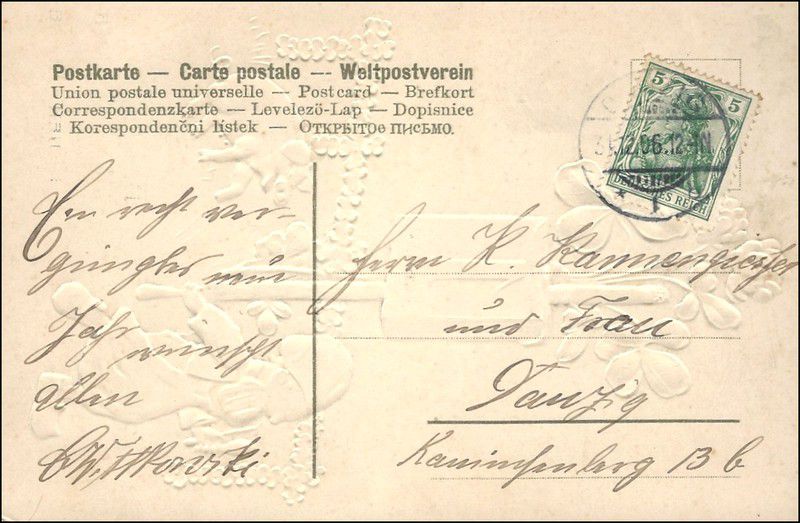 Postkarte — Carte postale — Weltpostverein
Union postale universelle — Postcard — Brefkort
Correspondenzkarte — Levelező-Lap — Dopisnice
Korespondenční lístek — ОТКРЫТОЕ ПИСЬМО.
5 5
DEUTSCHES REICH
12.06.12-1N
Ein recht ver-
gnügtes neue
Jahr wünscht
allen
Wittkowski
Herrn K. Kannengiesser
und Frau
Danzig
Kaninchenberg 13 b